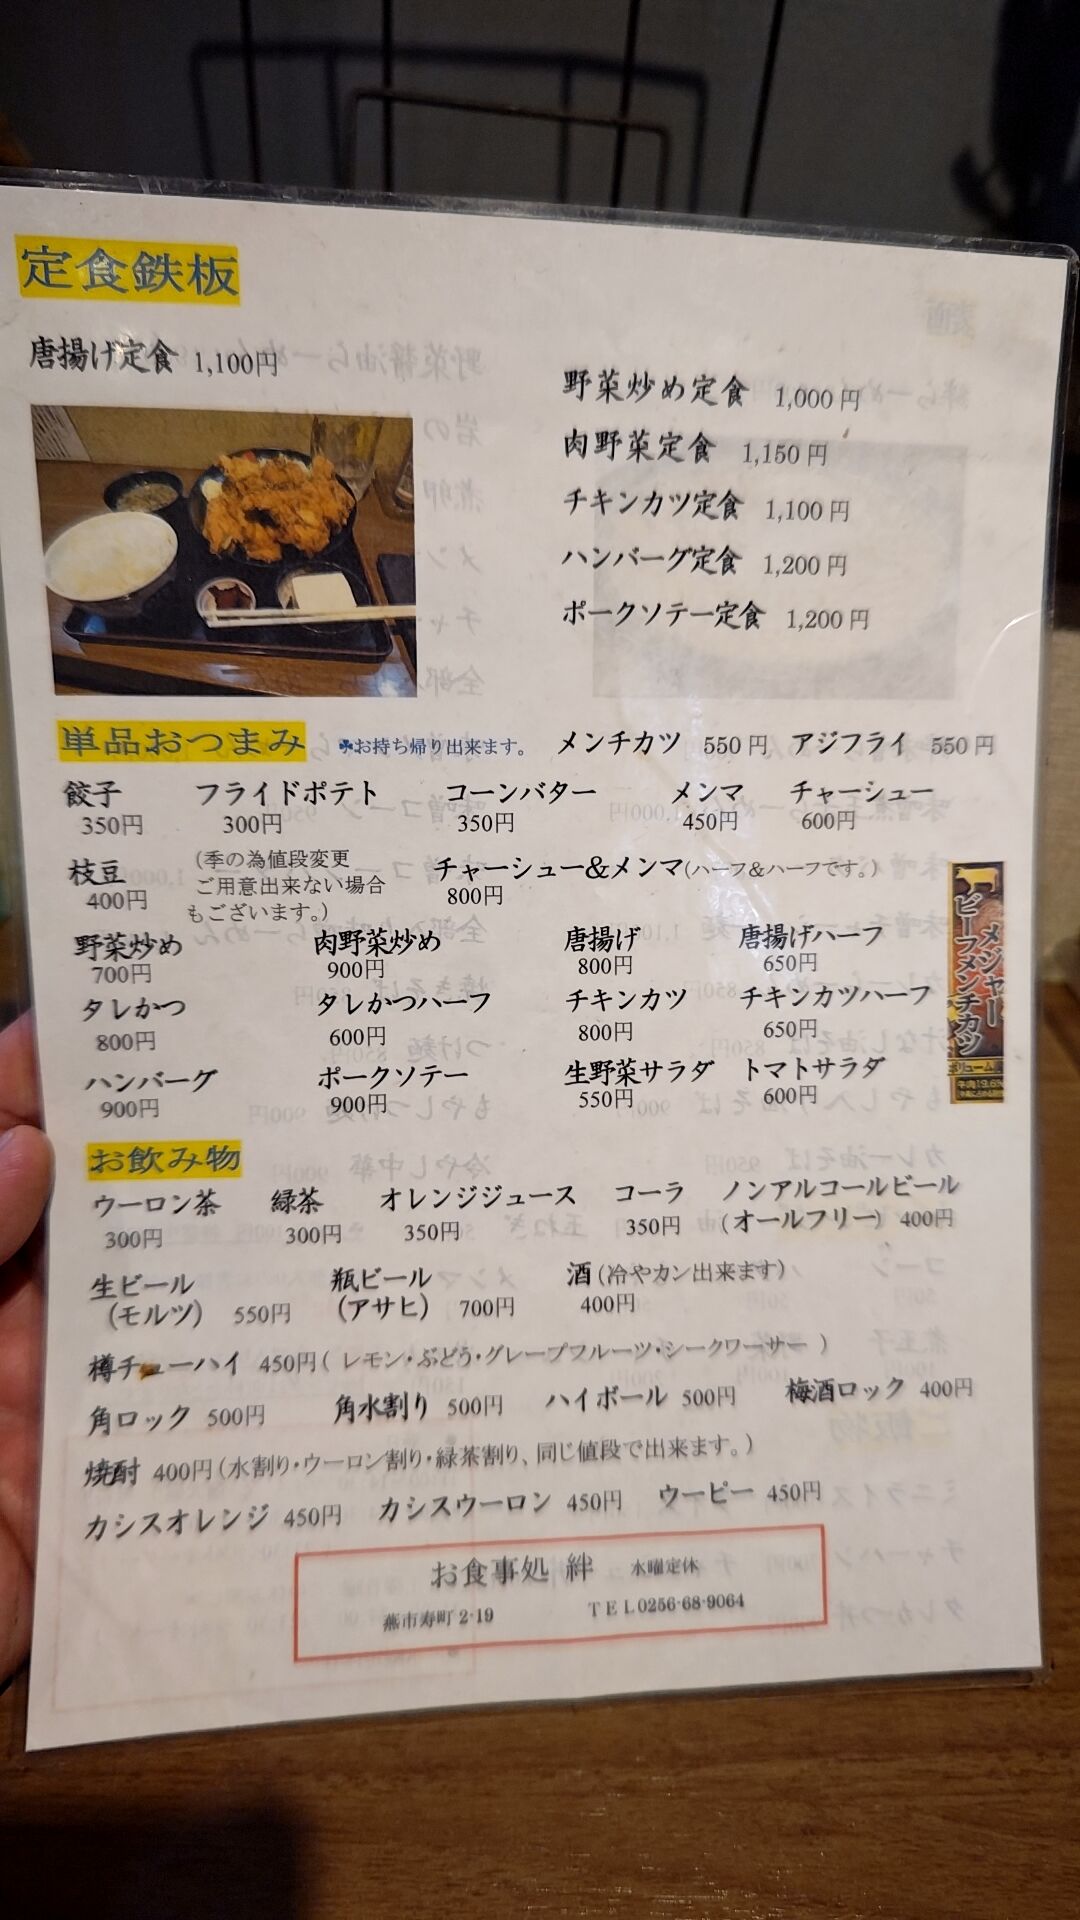 定食鉄板
唐揚げ定食 1,100円
野菜炒め定食 1,000円
肉野菜定食 1,150円
チキンカツ定食 1,100円
ハンバーグ定食 1,200円
ポークソテー定食 1,200円
単品おつまみ ☘お持ち帰り出来ます。 メンチカツ 550円 アジフライ 550円
餃子 フライドポテト コーンバター メンマ チャーシュー
350円 300円 350円 450円 600円
枝豆 (季の為値段変更 チャーシュー&メンマ(ハーフ&ハーフです。)
400円 ご用意出来ない場合 800円
もございます。)
野菜炒め 肉野菜炒め 唐揚げ 唐揚げハーフ
700円 900円 800円 650円
タレかつ タレかつハーフ チキンカツ チキンカツハーフ
800円 600円 800円 650円
ハンバーグ ポークソテー 生野菜サラダ トマトサラダ
900円 900円 550円 600円
メジャー
ビーフメンチカツ
ボリューム
お飲み物
ウーロン茶 緑茶 オレンジジュース コーラ ノンアルコールビール
300円 300円 350円 350円 (オールフリー) 400円
生ビール 瓶ビール 酒(冷やカン出来ます)
(モルツ) 550円 (アサヒ) 700円 400円
樽チューハイ 450円( レモン・ぶどう・グレープフルーツ・シークワーサー )
角ロック 500円 角水割り 500円 ハイボール 500円 梅酒ロック 400円
焼酎 400円(水割り・ウーロン割り・緑茶割り、同じ値段で出来ます。)
カシスオレンジ 450円 カシスウーロン 450円 ウーピー 450円
お食事処 絆 水曜定休
燕市寿町2-19 TEL0256-68-9064